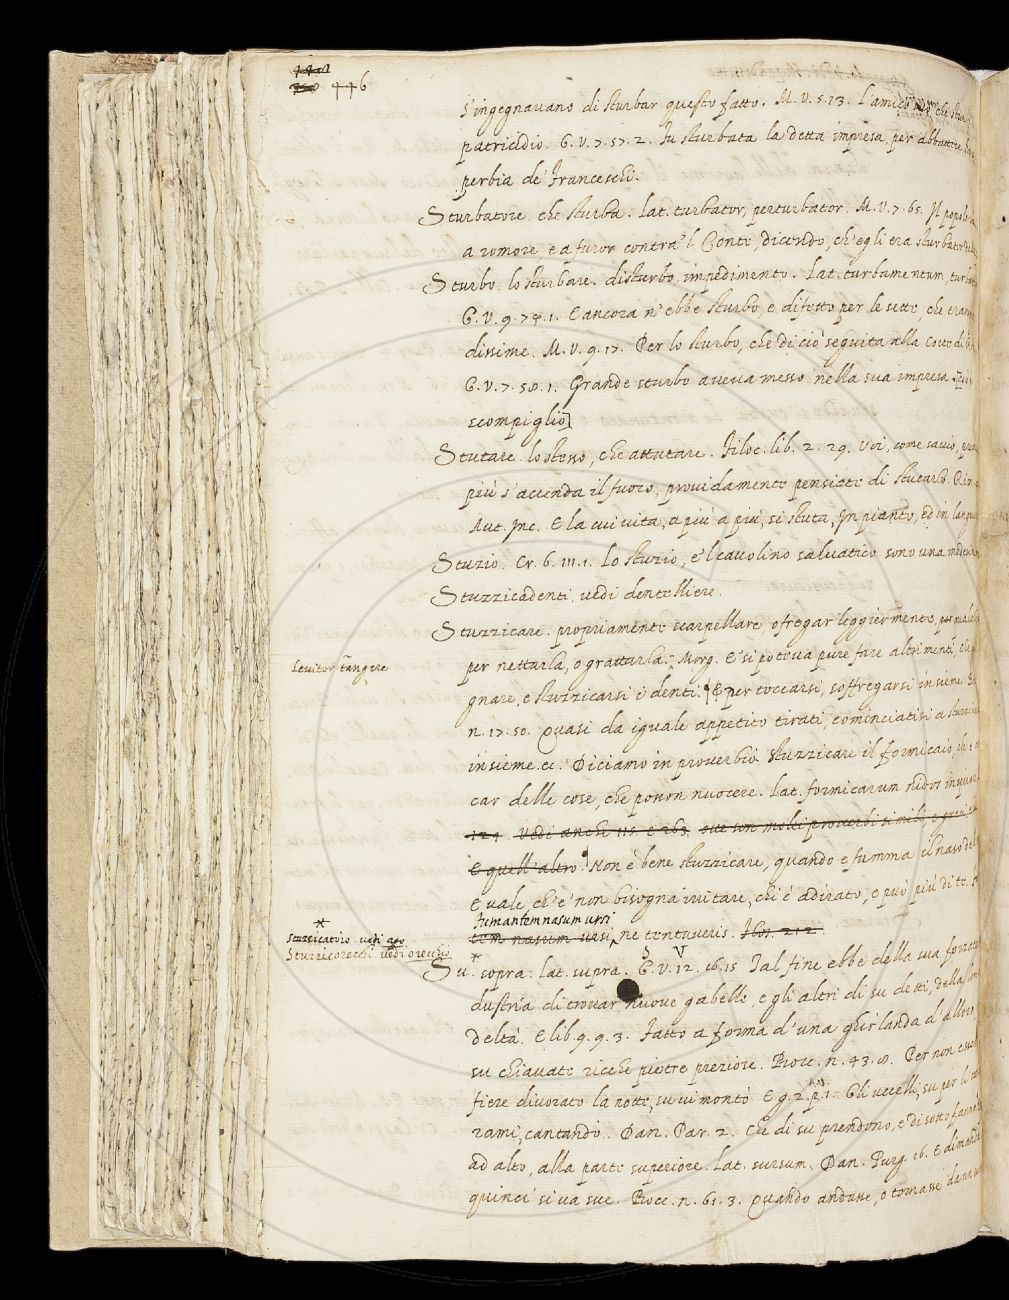 446
s'ingegnavano di sturbar questo fatto. M. V. 5. 23. L'amico
patricidio. G. V. 7. 57. 2. Fu sturbata la detta impresa, per abbattere
perbia de' Franceschi.
Sturbatore. che sturba. Lat. turbator, perturbator. M. V. 7. 65. Il popolo
a romore, e a furor contra 'l Conte, dicendo, ch'egli era sturbator
Sturbo. lo sturbare. disturbo, impedimento. Lat. turbamentum,
G. V. 9. 74. 1. E ancora n'ebbe sturbo, e difetto per le sette, che eran
dissime. M. V. 9. 17. Per lo sturbo, che di ciò seguita alla Corte di
G. V. 7. 58. 1. Grande sturbo aveva messo nella sua impresa
scompiglio]
Stutare. lo stesso, che attutare. Filoc. lib. 2. 29. Voi, come savio,
più s'accenda il fuoco, providamente pensiate di stutarlo. Rim.
Aut. Inc. E la cui vita, a più a più, si stuta, In pianto, ed in
Stuzio. Cr. 6. 111. 1. Lo stuzio, e 'l cavolino salvatico sono una
Stuzzicadenti. vedi dentelliere.
Stuzzicare. propriamente scarpellare, o fregar leggiermente,
Leviter tangere
per nettarla, o grattarla. Morg. E si poteva pure fare altrimenti,
gnare, e stuzzicarsi i denti. E per toccarsi, soffregarsi insieme.
n. 17. 50. Quasi da iguale appetito tirati, cominciatisi a
insieme ec. Diciamo in proverbio. Stuzzicare il formicaio,
car delle cose, che posson nuocere. Lat. formicarum nidos
124. Vedi anche 115. e 263. ove son molti proverbi simili,
E quell'altro. Non è bene stuzzicare, quando e' fumma il naso
E vale, ch'e' non bisogna irritare, chi è adirato, e può più di te.
Fumantem nasum ursi
tem nasum ursi, ne tentaveris. 212.
Sturicatoio. vedi
Sturricorecchi. vedi orecchio
Su. sopra. lat. supra. G. V. 12. 16. 15 Tal fine ebbe della sua
dustria di trovar nuove gabelle, e gli altri di su detti, della
deltà. E lib. 9. 9. 3. Fatto a forma d'una ghirlanda d'alloro
su chiavate ricche pietre preziose. Bocc. n. 43. 8. Per non
fiere divorato la notte, su vi montò. E g. 2. p. 1. Gli uccelli, su per li
rami, cantando. Dan. Par. 2. Che di su prendono, e di sotto fanno
ad alto, alla parte superiore. Lat. sursum. Dan. Purg. 16.
quinci si va sue. Bocc. n. 61. 3. Quando andasse, o tornasse